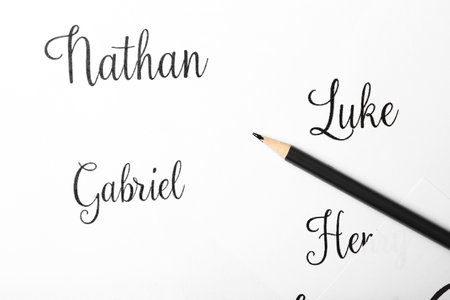 Nathan
Luke
Gabriel
Her